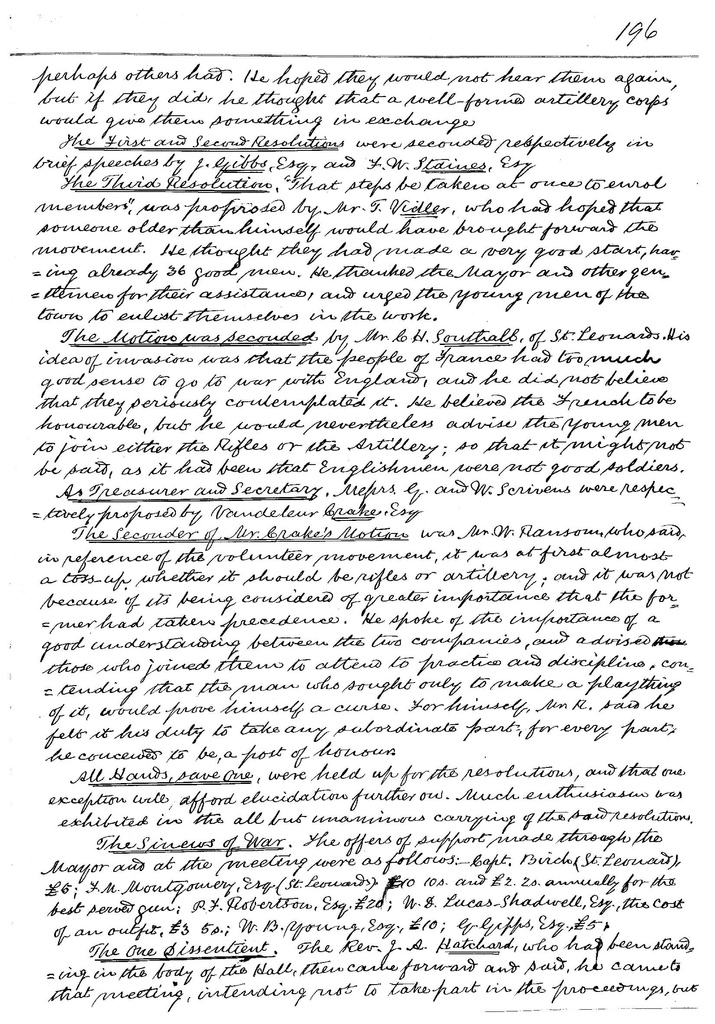 196
perhaps others had. He hoped they would not hear them again,
but if they did, he thought that a well-formed artillery corps
would give them something in exchange
The First and Second Resolutions were seconded respectively in
brief speeches by J. Gibbs, Esq, and F. W. Staines, Esq
The Third Resolution, "That steps be taken at once to enrol
members", was proposed by Mr. T. Vidler, who had hoped that
someone older than himself would have brought forward the
movement. He thought they had made a very good start, hav=
=ing already 36 good men. He thanked the Mayor and other gen=
=tlemen for their assistance, and urged the young men of the
town to enlist themselves in the work.
The Motion was seconded by Mr. C. H. Southall, of St. Leonards. His
idea of invasion was that the people of France had too much
good sense to go to war with England, and he did not believe
that they seriously contemplated it. He believed the French to be
honourable, but he would nevertheless advise the young men
to join either the Rifles or the Artillery; so that it might not
be said, as it had been that Englishmen were not good soldiers.
As Treasurer and Secretary, Messrs. G. and W. Scrivens were respec=
=tively proposed by Vandeleur Crake, Esq
The Seconder of Mr. Crake's Motion was Mr. W. Ransom, who said,
in reference of the volunteer movement, it was at first almost
a toss-up whether it should be rifles or artillery; and it was not
because of its being considered of greater importance that the for=
=mer had taken precedence. He spoke of the importance of a
good understanding between the two companies, and advised
those who joined them to attend to practice and discipline, con=
=tending that the man who sought only to make a plaything
of it, would prove himself a curse. For himself, Mr. R. said he
felt it his duty to take any subordinate part, for every part,
he conceived to be, a post of honour.
All Hands, save One, were held up for the resolutions, and that one
exception will afford elucidation further on. Much enthusiasm was
exhibited in the all but unanimous carrying of the said resolution.
The Sinews of War. The offers of support made through the
Mayor and at the meeting were as follows:- Capt. Birch (St. Leonards),
£5; F. M. Montgomery, Esq (St. Leonards) £10 10s. and £2. 2s. annually for the
best served gun; P. F. Robertson, Esq. £20; W. D. Lucas-Shadwell, Esq., the cost
of an outfit, £3 5s; W. B. Young, Esq., £10; G. Gipps, Esq., £5.
The One Dissentient. The Rev. J. A. Hatchard, who had been stand=
=ing in the body of the Hall, then came forward and said, he came to
that meeting, intending not to take part in the proceedings, but